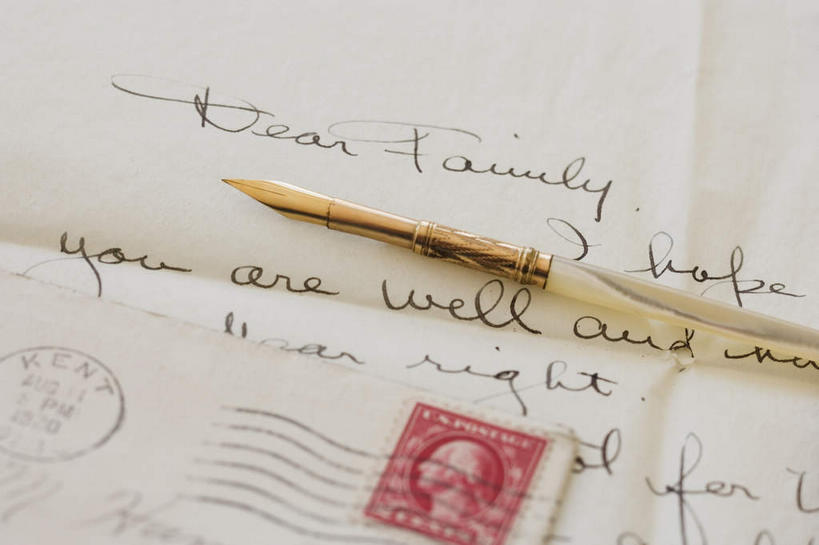 Dear Family,
I hope
you are well and
right.
for
KENT
AUG 11
PM
1920
U.S. POSTAGE
CENTS